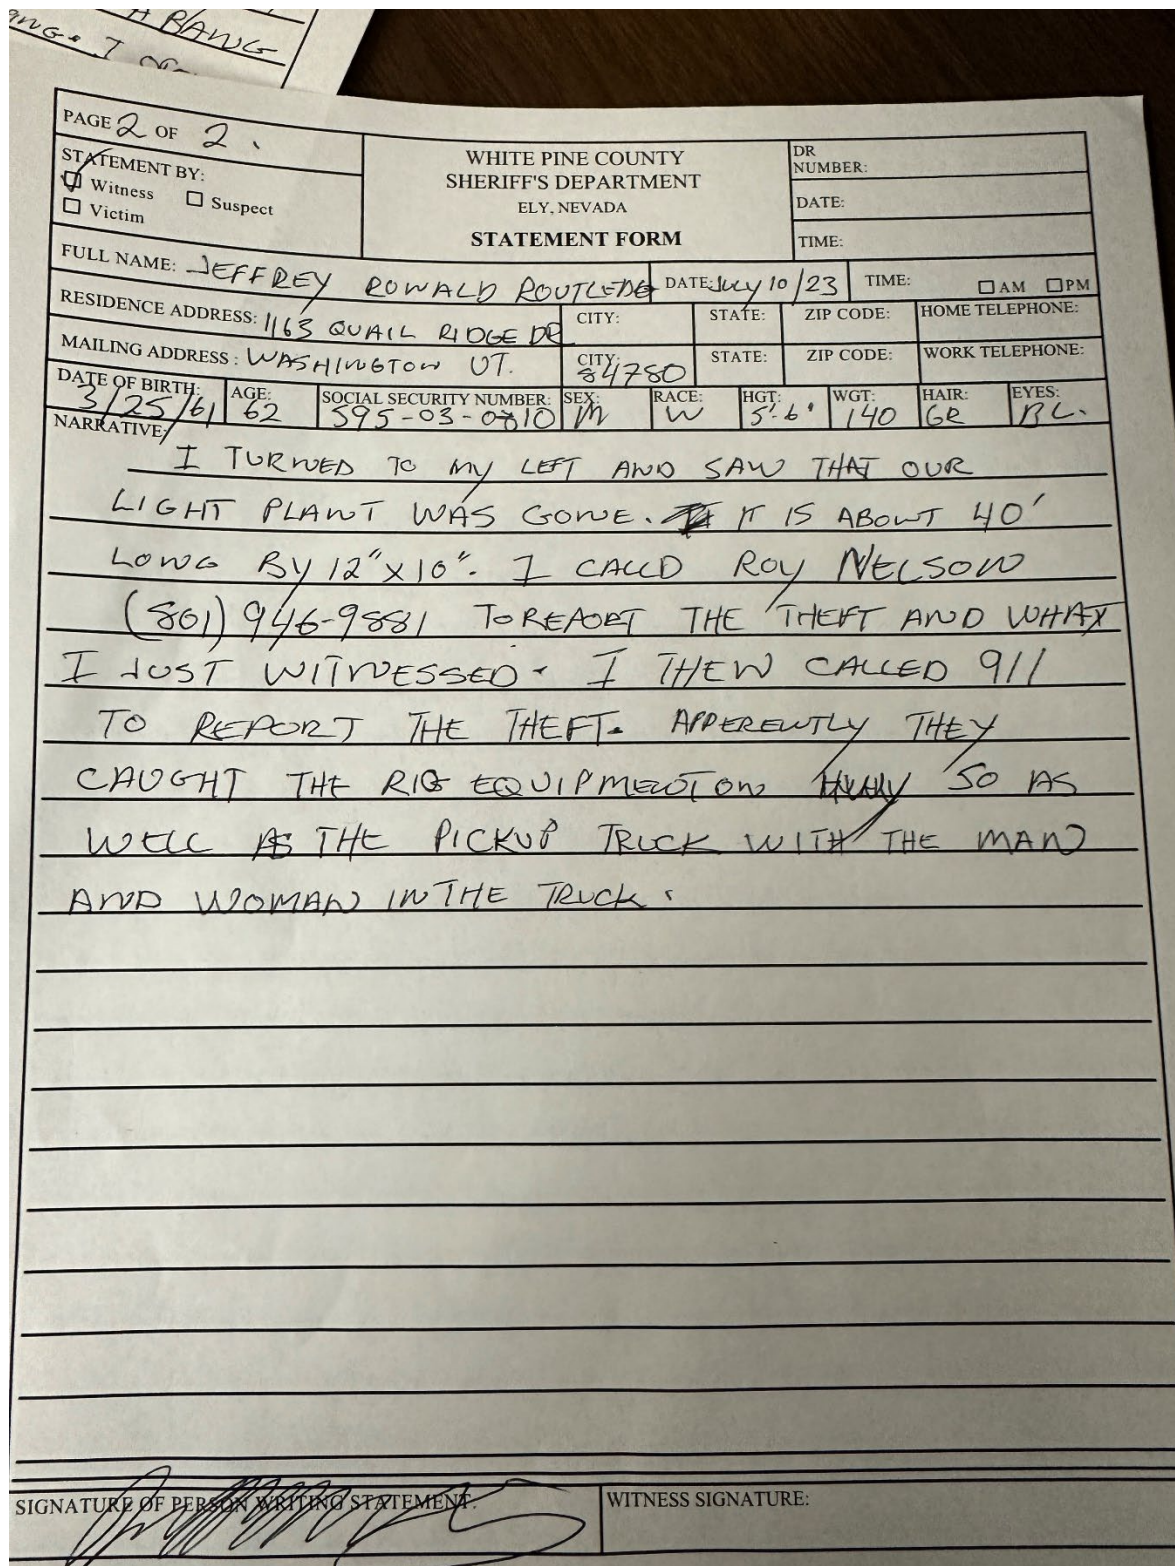 A BANG
PAGE 2 OF 2.
STATEMENT BY:
Witness Suspect
Victim
WHITE PINE COUNTY
SHERIFF'S DEPARTMENT
ELY, NEVADA
STATEMENT FORM
DR
NUMBER:
DATE:
TIME:
FULL NAME: JEFFREY RONALD ROUTLEDGE DATE: JULY 10/23 TIME: AM PM
RESIDENCE ADDRESS: 1163 QUAIL RIDGE DR CITY: STATE: ZIP CODE: HOME TELEPHONE:
MAILING ADDRESS: WASHINGTON UT. CITY: 84780 STATE: ZIP CODE: WORK TELEPHONE:
DATE OF BIRTH: 3/25/61 AGE: 62 SOCIAL SECURITY NUMBER: SEX: M RACE: W HGT: 5'-6" WGT: 140 HAIR: GR EYES: BL.
NARRATIVE:
I TURNED TO MY LEFT AND SAW THAT OUR
LIGHT PLANT WAS GONE. IT IS ABOUT 40'
LONG BY 12"X10". I CALLD ROY NELSON
(801) 946-9881 TO REPORT THE THEFT AND WHAT
I JUST WITNESSED. I THEN CALLED 911
TO REPORT THE THEFT. APPERENTLY THEY
CAUGHT THE RIG EQUIPMENT ON 50 AS
WELL AS THE PICKUP TRUCK WITH THE MAN
AND WOMAN IN THE TRUCK.
SIGNATURE OF PERSON WRITING STATEMENT:
WITNESS SIGNATURE: